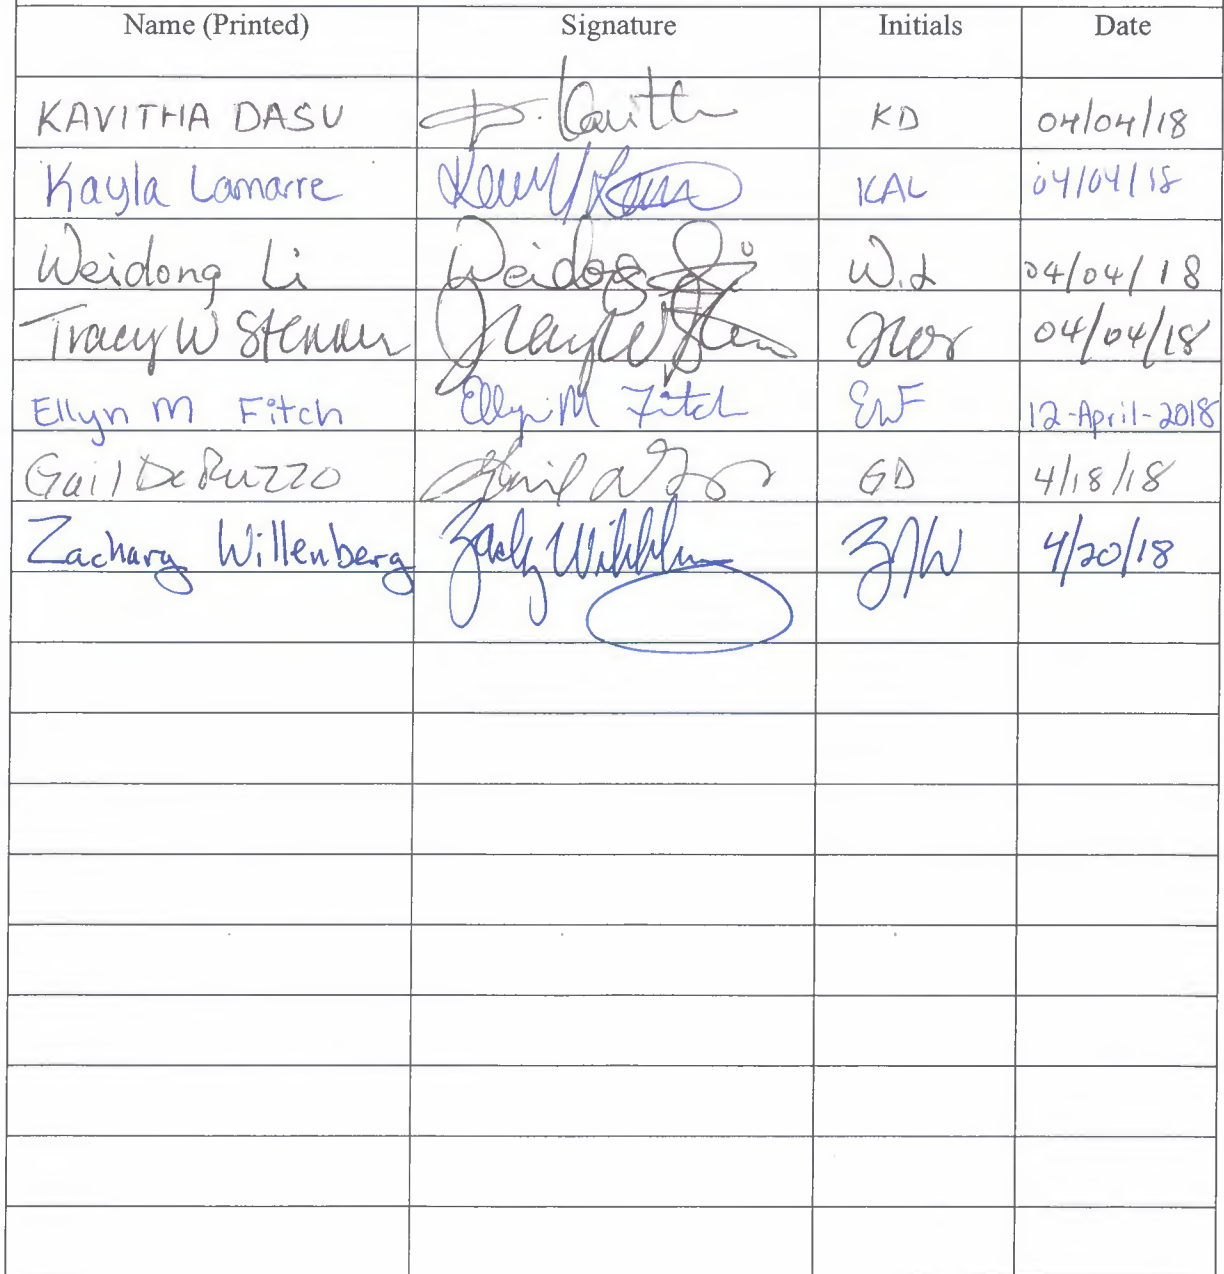 Name (Printed) Signature Initials Date
KAVITHA DASU D. Kavitha KD 04/04/18
Kayla Lamarre KAL 04/04/18
Weidong Li Weidong Li W.L 04/04/18
Tracy W Stenner 04/04/18
Ellyn M Fitch Ellyn M Fitch EMF 12-April-2018
Gail DeRuzzo GD 4/18/18
Zachary Willenberg ZJW 4/20/18